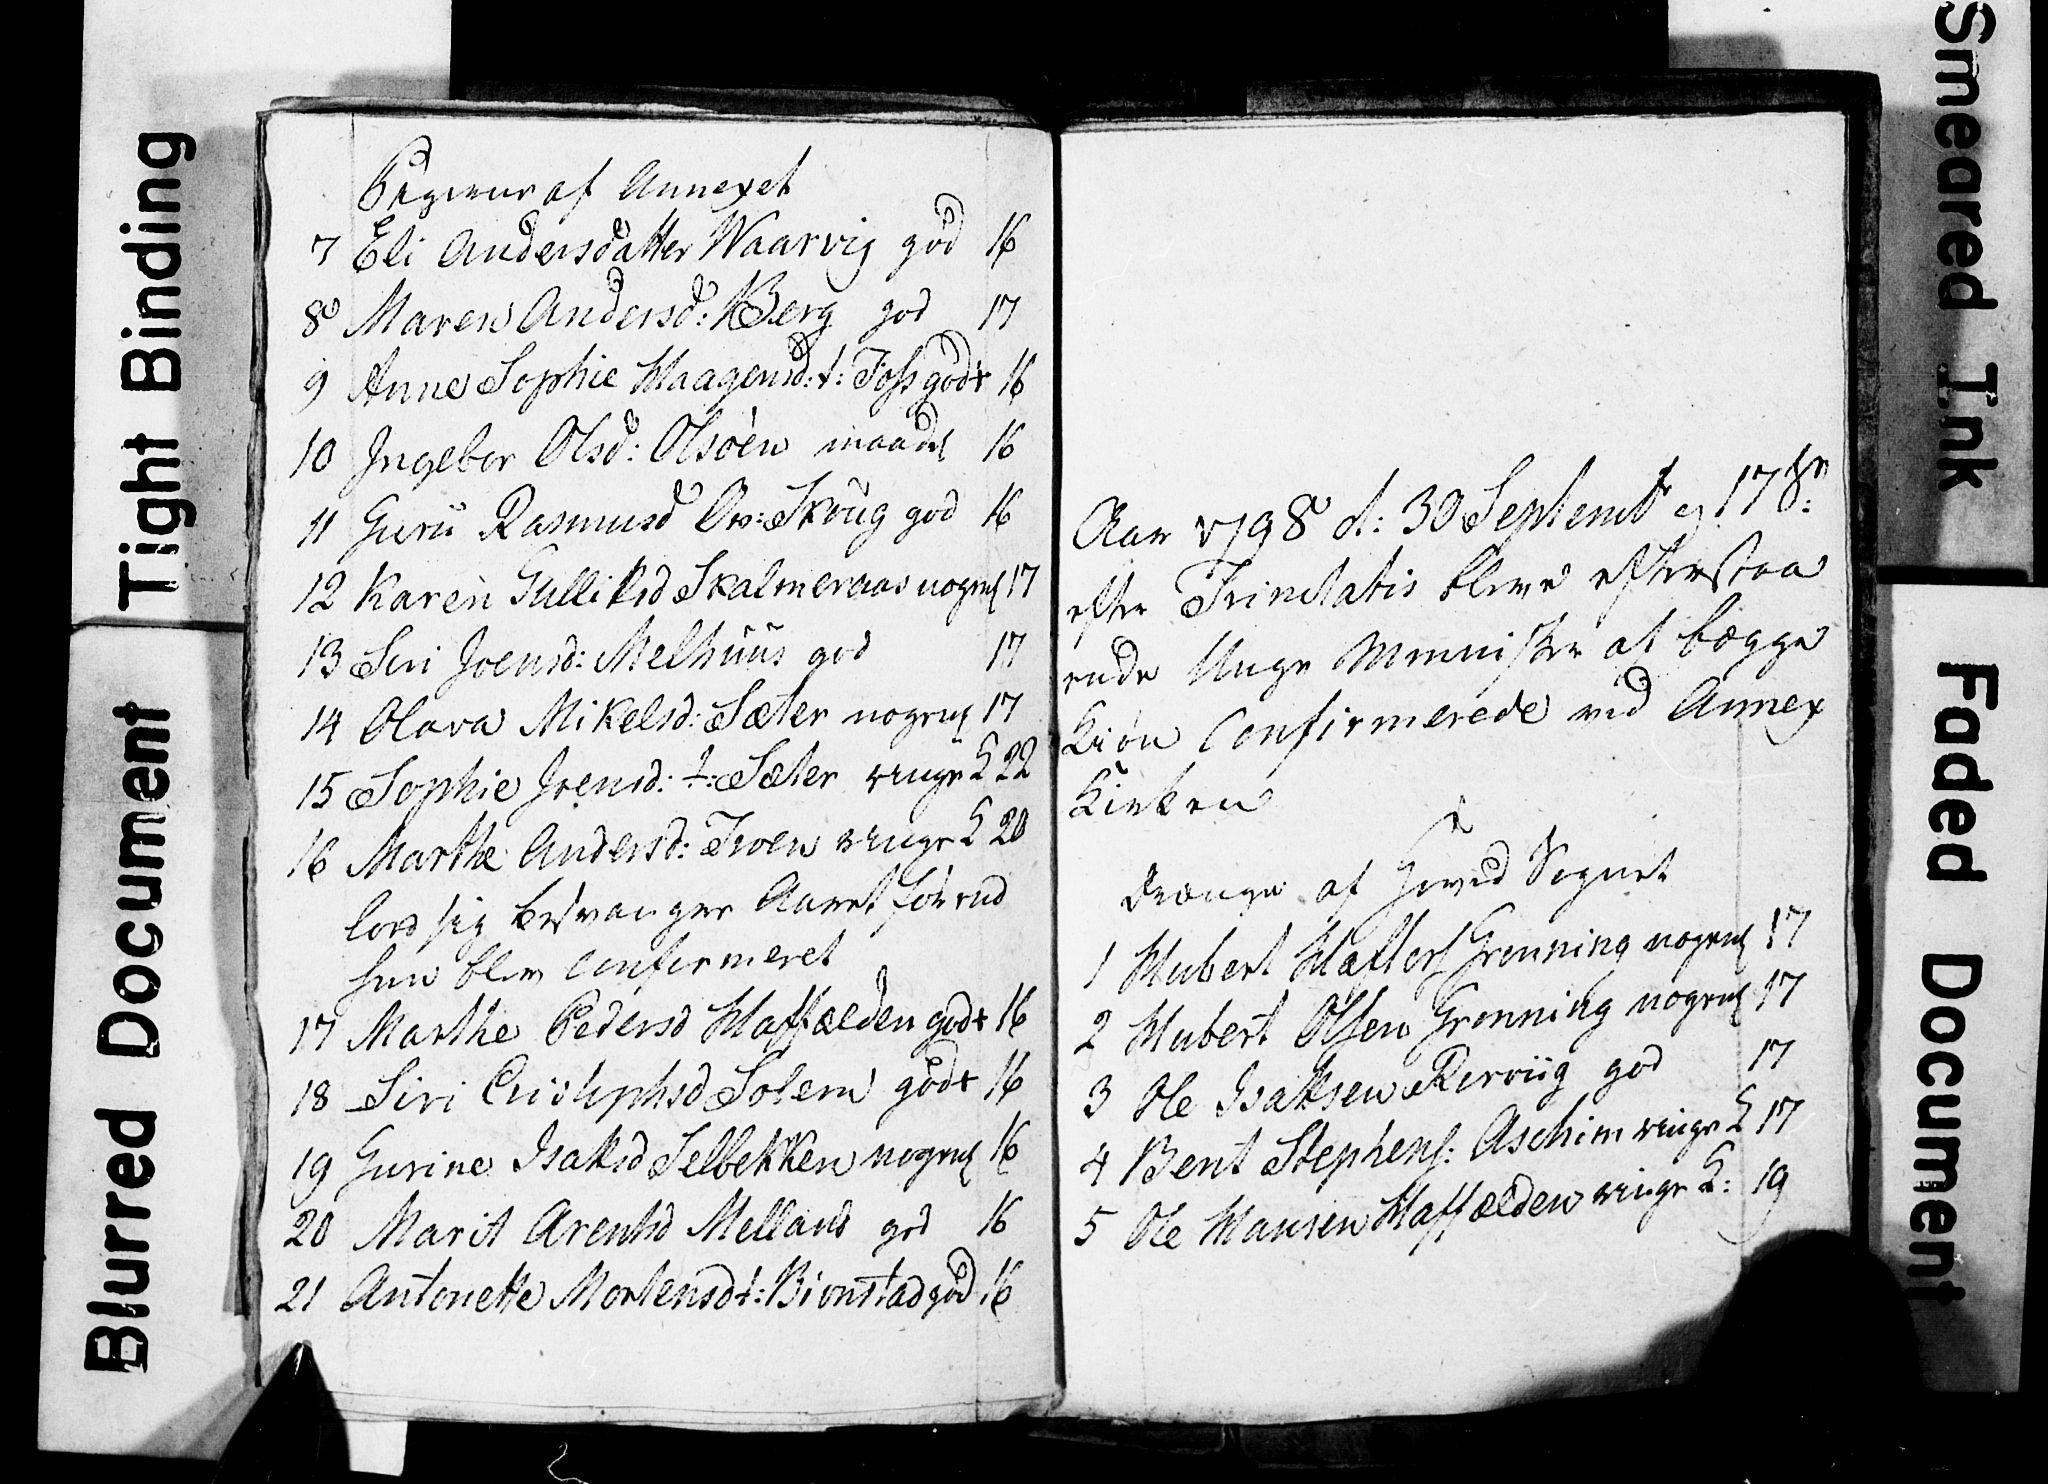 Tight Binding
Blurred Document
Smeared Ink
Faded Document
Pigerne af Annexet
7 Eli Andersdatter Waarvig god 16
8 Maren Andersd: Berg god 17
9 Anne Sophie Haagensd: t: Foss godt 16
10 Ingebor Olsd: Olsøen maadel 16
11 Guru Rasmusd Ov: Skoug god 16
12 Karen Gulliksd Skalmeraas nogenl 17
13 Siri Joensd: Melhuus god 17
14 Olava Mikelsd: Sæter nogenl 17
15 Sophie Joensd: t: Sæter ringe K 22
16 Marthe Andersd: Troen ringe K 20
lod sig besvangre Aaret førend
hun blev Confirmeret
17 Marthe Pedersd Haffælden godt 16
18 Siri Cristiphsd Solem godt 16
19 Gurine Isaksd Selbekken nogenl 16
20 Marit Arentsd Melland god 16
21 Antonette Mortensd t: Bionstad god 16
Aar 1798 d: 30 Septembr eg 17 Sø:
efter Trinitatis bleve efterstaa
ende Unge Mennisker af begge
Kiøn Confirmerede ved Annex
Kirken
Drænge af Hoved Sognet
1 Hubert Hafters Grønning nogenl 17
2 Hubert Olsen Grønning nogenl 17
3 Ole Isaksen Rerviig god 17
4 Bent Stephens: Aschim ringe K 17
5 Ole Hansen Haffælden ringe K: 19